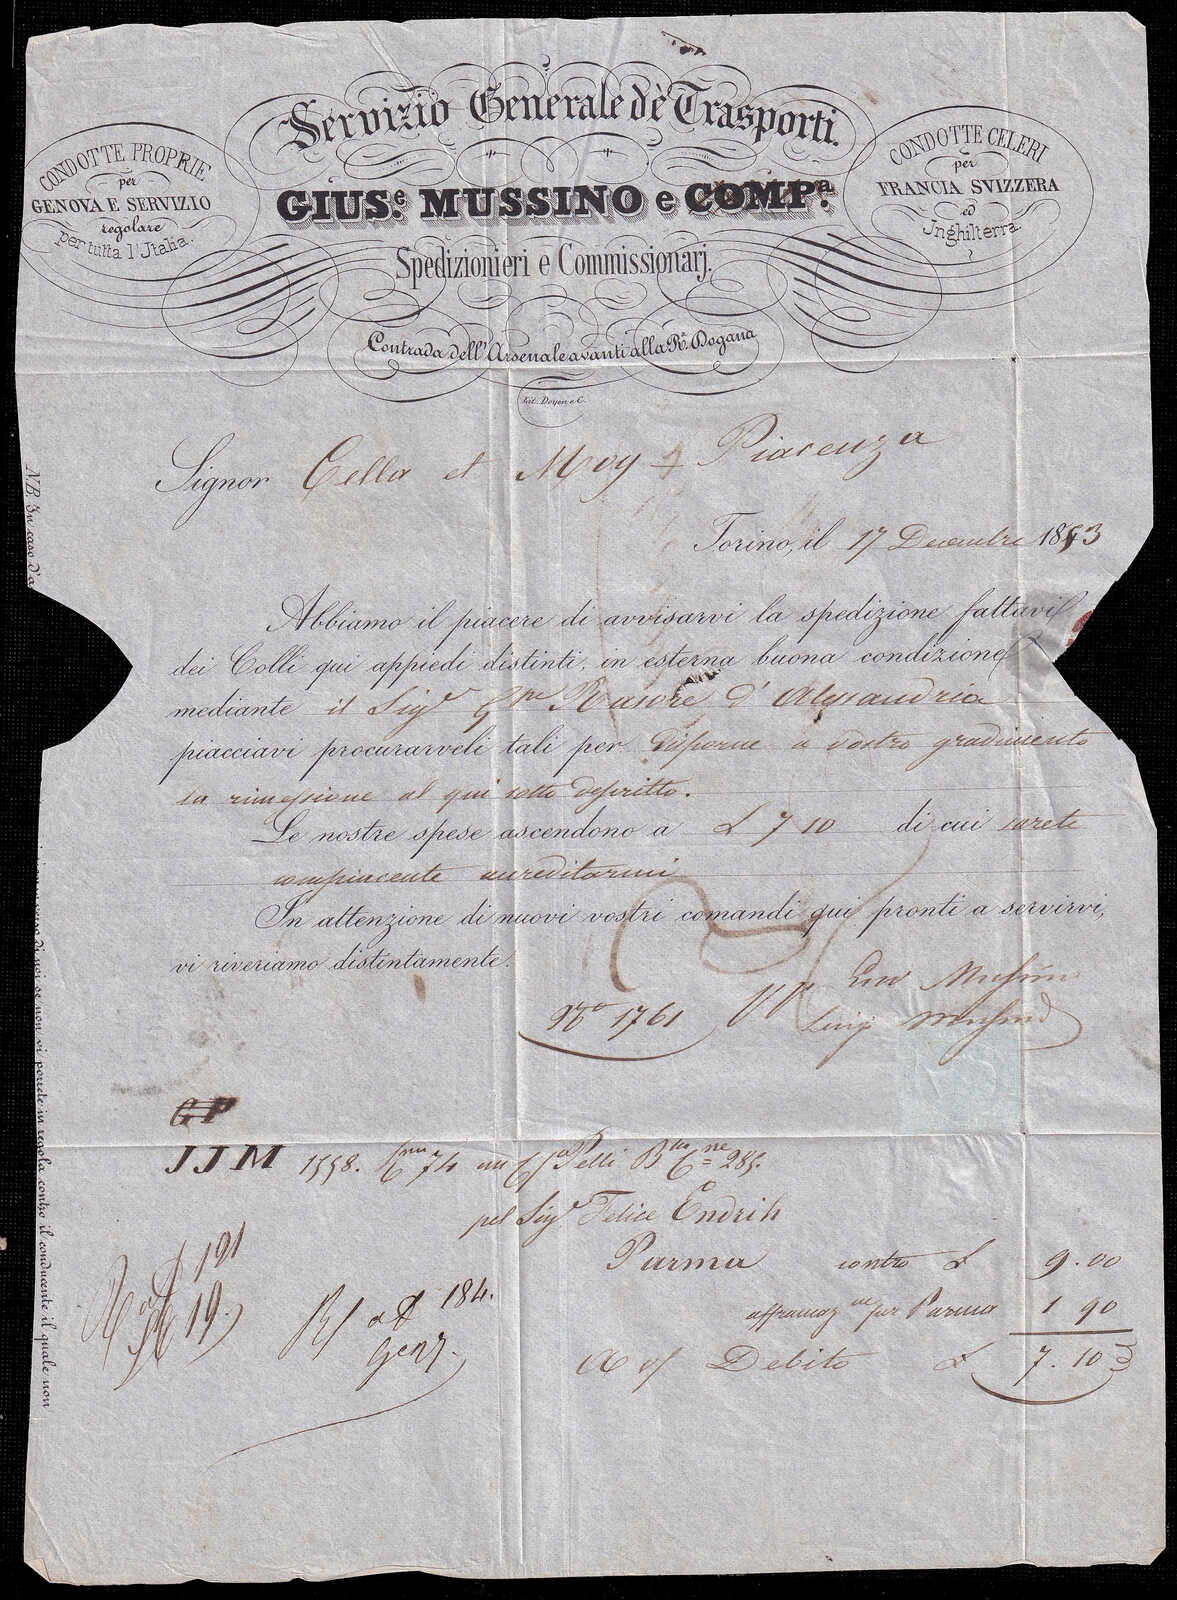 Servizio Generale dè Trasporti.
GIUS.e MUSSINO e COMP.a
Spedizionieri e Commissionarj.
CONDOTTE PROPRIE
per
GENOVA E SERVIZIO
regolare
per tutta l'Italia.
CONDOTTE CELERI
per
FRANCIA SVIZZERA
ed
Inghilterra.
Contrada dell'Arsenale avanti alla Ra. Dogana
Lit. Doyen e C.
Signor Cella et Moy Piacenza
Torino, il 17 Decembre 1853
Abbiamo il piacere di avvisarvi la spedizione fattavi
dei Colli qui appiedi distinti, in esterna buona condizione
mediante il Sigr Gpe Rasore d'Alessandria
piacciavi procurarveli tali per disporne a vostro gradimento
la rimessione al qui sotto descritto.
Le nostre spese ascendono a £ 7 10 di cui sarete
compiacente accreditarmi
In attenzione di nuovi vostri comandi qui pronti a servirvi,
vi riveriamo distintamente.
1761 Mussino
Luigi Mussino
GP
JJM 1558. 74 Pelli 285.
pel Sigr Felice Endrih
Parma contro £ 9.00
affrancazne per Parma 1 90
Debito £ 7.10
191
19.
184.
N.B. In caso d'a
di noi se non vi portete in regola contro il conducente il quale non